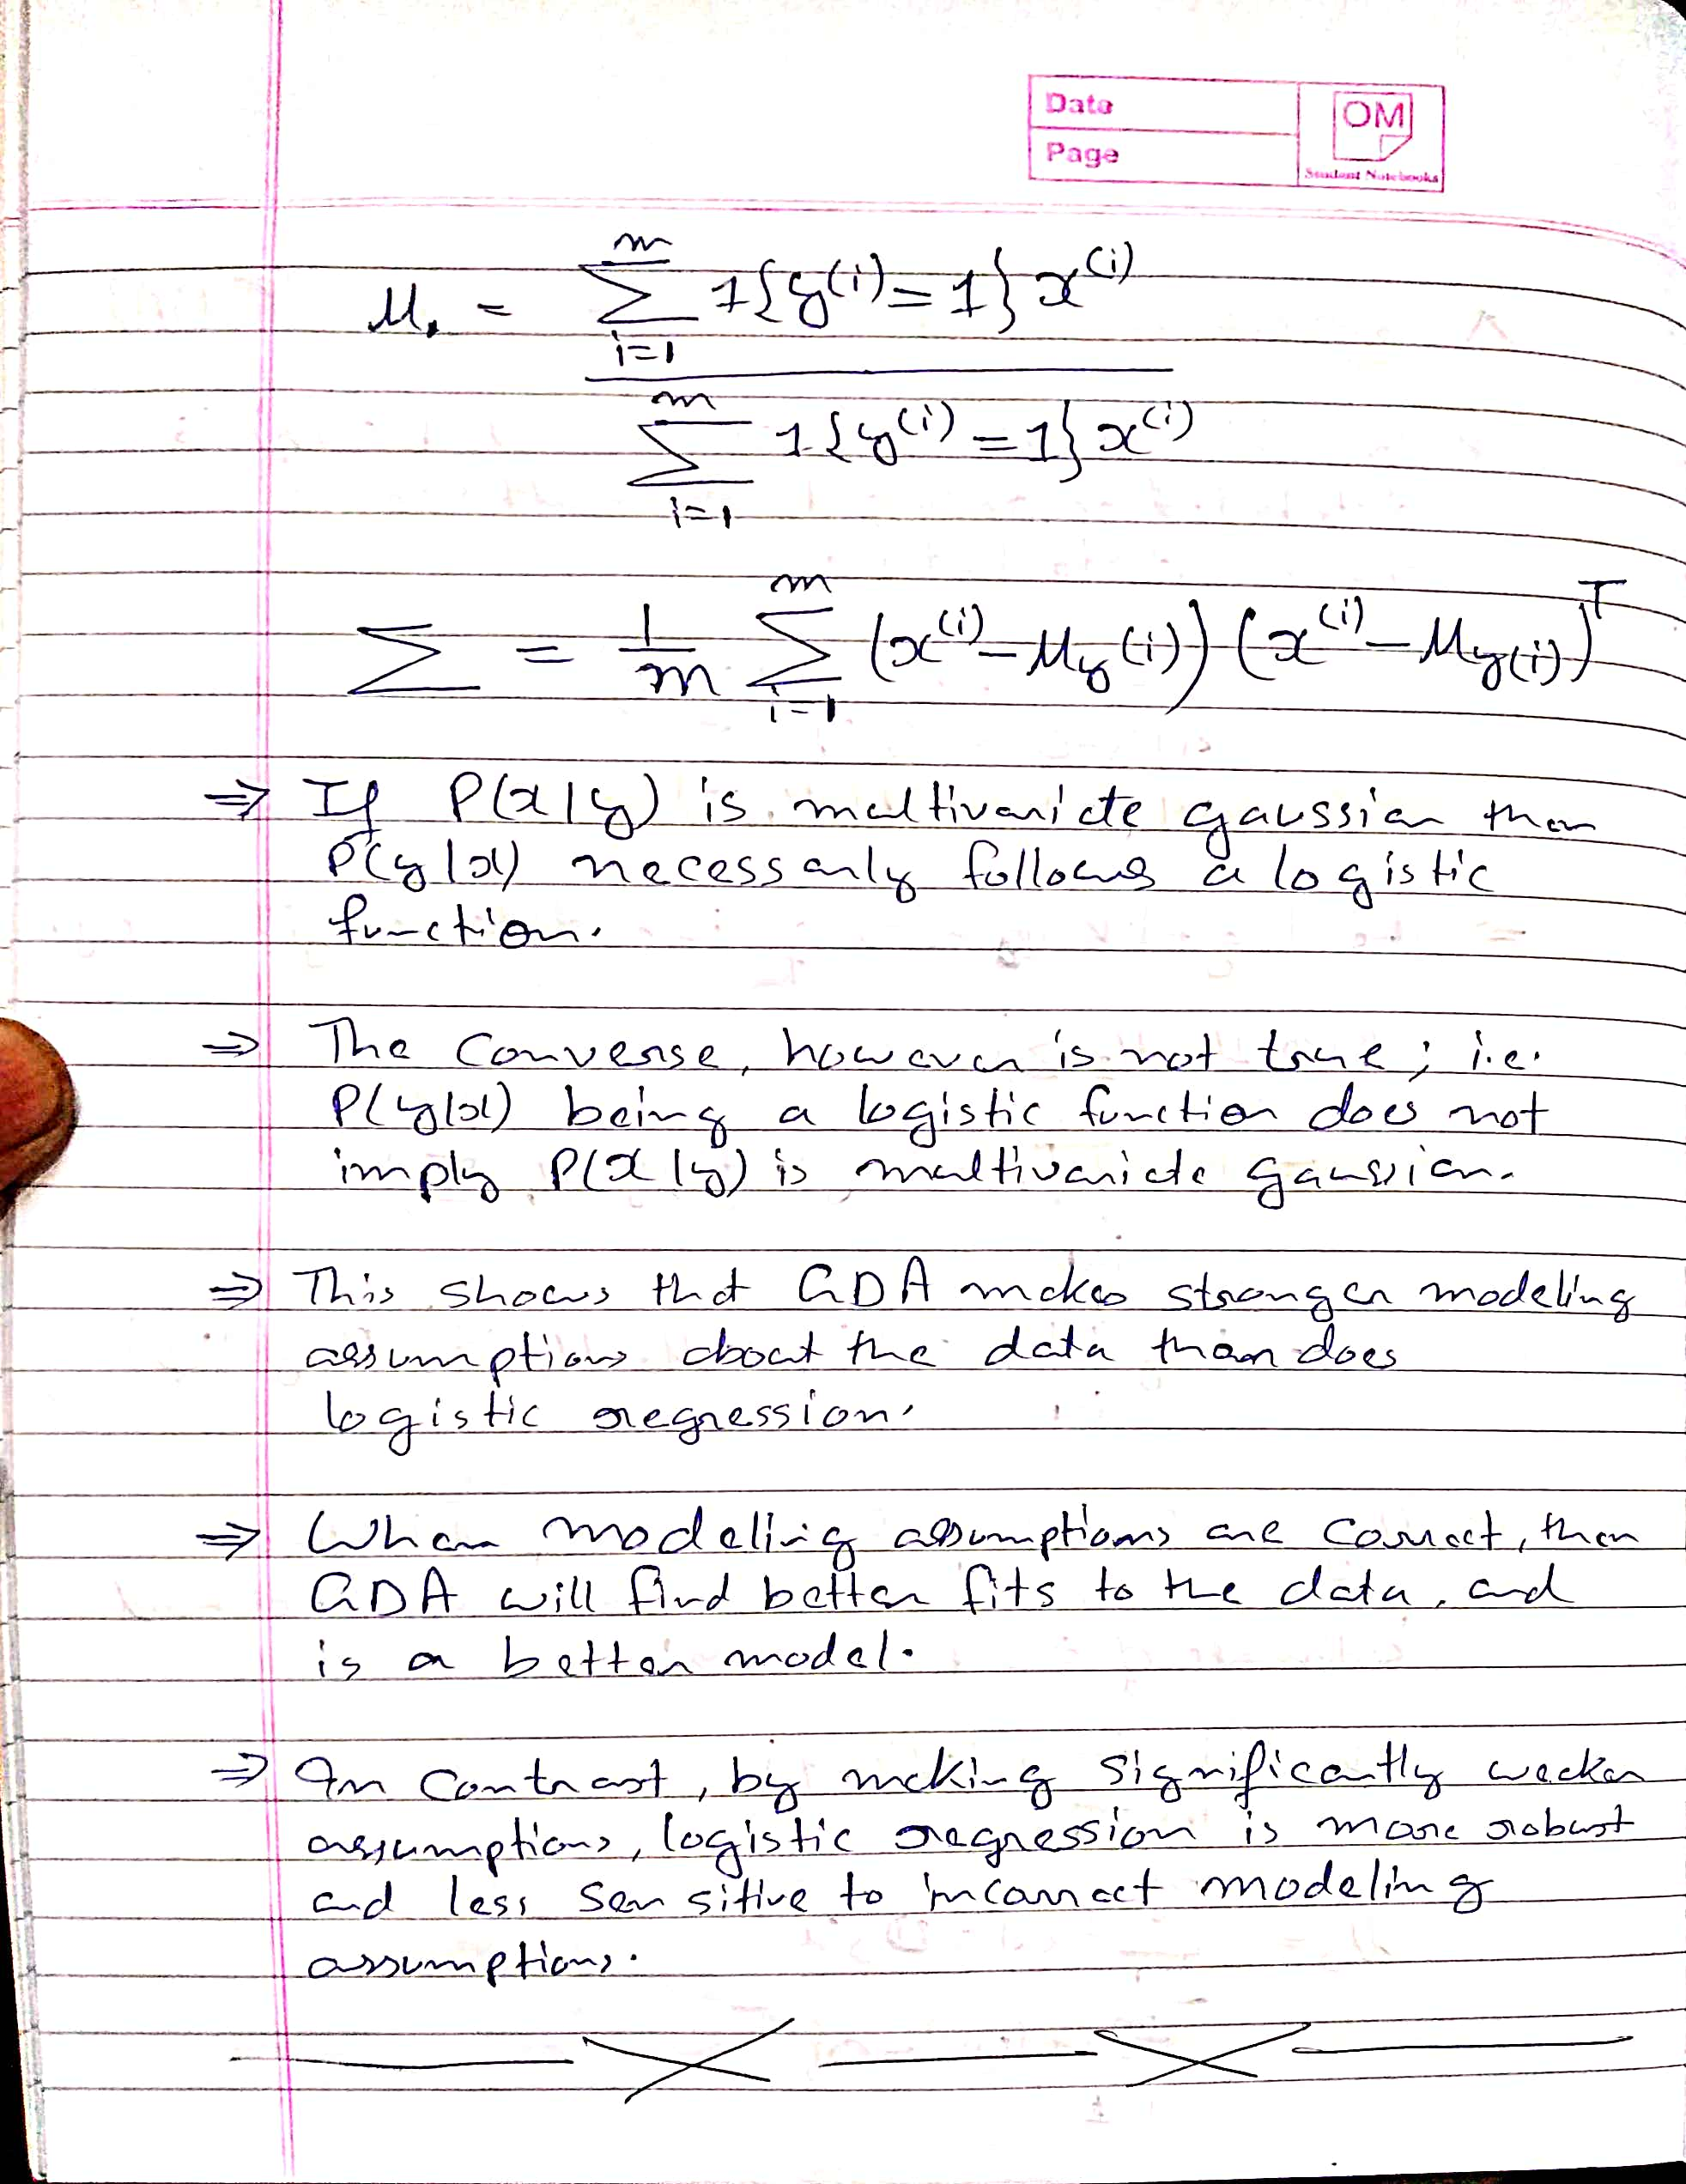 Date
Page
OM
Student Notebooks
μ₁ = m Σ i=1 1{y(i) = 1} x(i)
m Σ i=1 1{y(i) = 1} x(i)
Σ = 1/m m Σ i=1 (x(i) - μy(i)) (x(i) - μy(i))T
⇒ If P(x|y) is multivariate gaussian then
P(y|x) necessarily follows a logistic
function.
⇒ The converse, however is not true; i.e.
P(y|x) being a logistic function does not
imply P(x|y) is multivariate gaussian.
⇒ This shows that GDA makes stronger modeling
assumptions about the data than does
logistic regression.
⇒ When modeling assumptions are correct, then
GDA will find better fits to the data, and
is a better model.
⇒ In contrast, by making significantly weaker
assumptions, logistic regression is more robust
and less sensitive to incorrect modeling
assumptions.